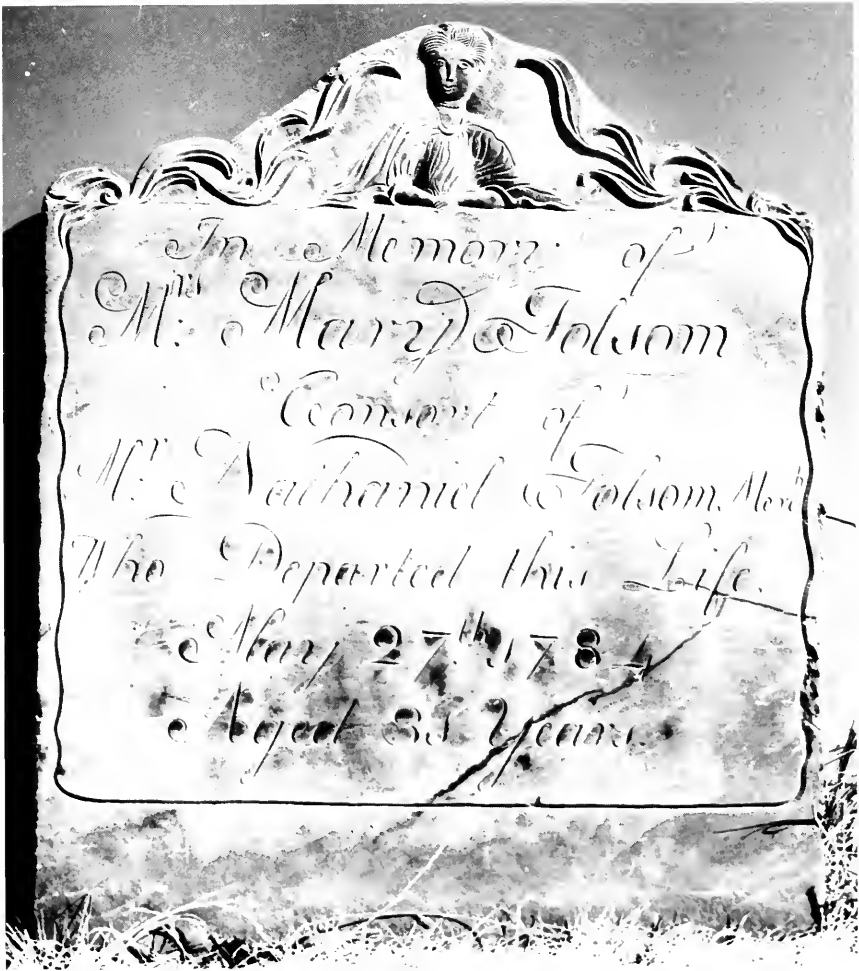 In Memory of
Mrs. Mary Folsom
Consort of
Mr. Nathaniel Folsom. Merch
Who Departed this Life.
May 27th
Aged Years.